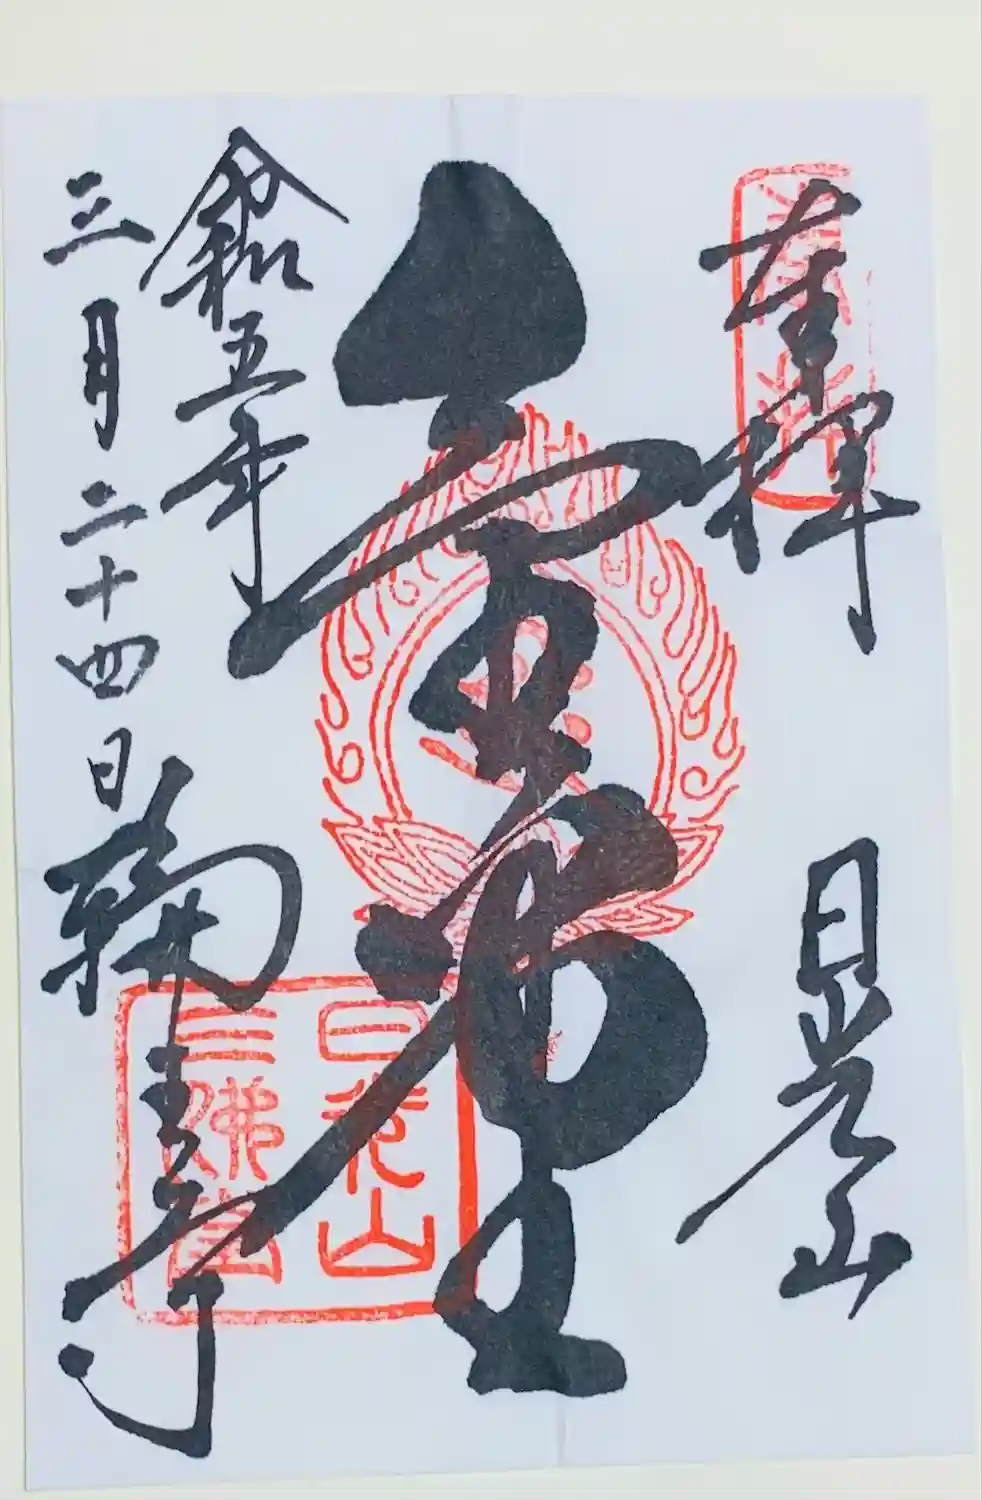 奉拝
日光山
金堂
令和五年
三月二十四日
輪王寺
日光山
三佛堂